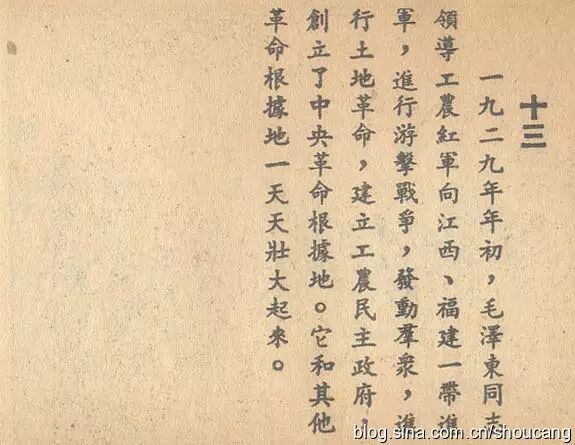 十三
一九二九年年初，毛澤東同志
領導工農紅軍向江西、福建一帶進
軍，進行游擊戰爭，發動羣衆，進
行土地革命，建立工農民主政府，
創立了中央革命根據地。它和其他
革命根據地一天天壯大起來。
blog.sina.com.cn/shoucang